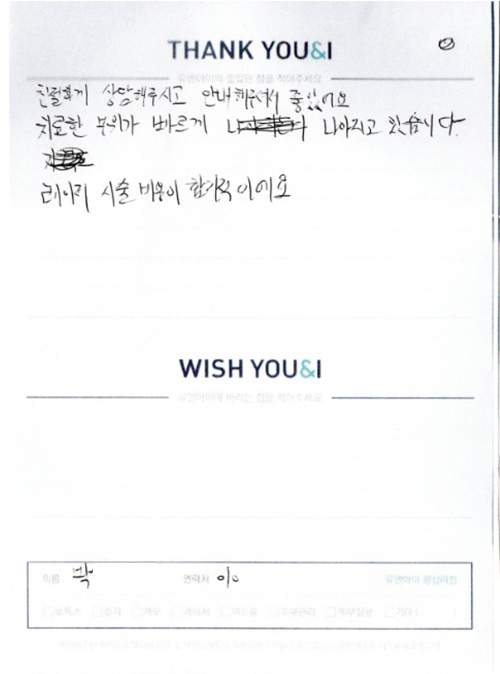 THANK YOU&I
유앤아이의 좋았던 점을 적어주세요
친절하게 상담해주시고 안내해주셔서 좋았어요
치료한 부위가 빠르게 나아지고 있습니다.
레이저 시술 비용이 합리적이에요
WISH YOU&I
유앤아이에 바라는 점을 적어주세요
이름 박 연락처 010
보톡스 필러 제모 레이저 여드름 피부관리 피부질환 기타 (